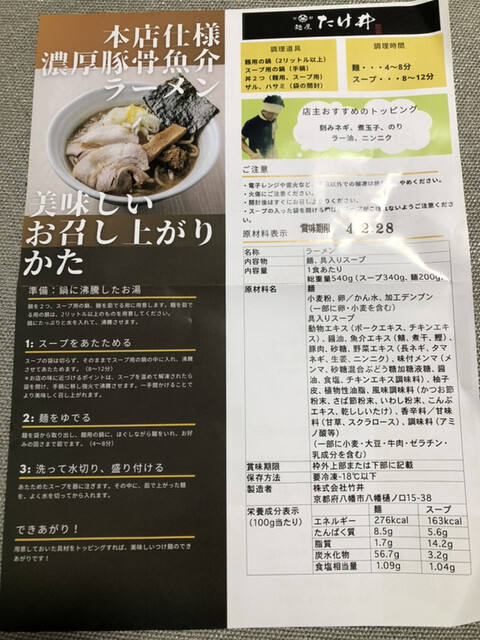 本店仕様
濃厚豚骨魚介
ラーメン
美味しい
お召し上がり
かた
準備：鍋に沸騰したお湯
鍋を２つ、スープ用の鍋、麺を茹でる用に用意します。麺を茹
でる用の鍋は、2リットル以上のものを用意してください。
鍋にたっぷりと水を入れて、沸騰させます。
1: スープをあたためる
スープの袋は切らず、そのままでスープ用の鍋の中に入れ、沸騰
させてあたためます。（8〜12分）
＊お店の味に近づけるポイントは、スープを温めて解凍されたら
袋を開け、手鍋に移し強火で沸騰させます。一手間かけることで
より美味しく召し上がれます。
2: 麺をゆでる
麺を袋から取り出し、麺用の鍋に、ほぐしながら麺をいれ、お好
みの固さまで茹でます。（4〜8分）
3: 洗って水切り、盛り付ける
あたためたスープを器に注ぎます。その中に、茹で上がった麺
を、よく水を切ってから入れます。
できあがり！
用意しておいた具材をトッピングすれば、美味しいつけ麺ので
きあがりです！
麺屋 たけ井
調理道具
麺用の鍋（2リットル以上）
スープ用の鍋（手鍋）
丼２つ（麺用、スープ用）
ザル、ハサミ（袋の開封）
調理時間
麺・・・4〜8分
スープ・・・8〜12分
店主おすすめのトッピング
刻みネギ、煮玉子、のり
ラー油、ニンニク
ご注意
・電子レンジや直火など、
以外での解凍は
やめください。
・火傷にご注意ください。
・開封後はすぐにお召し上がりください。
・スープの入った袋を開ける際
ないようご注意ください。
原材料表示
賞味期限
4.2.28
名称 ラーメン
内容物 麺、具入りスープ
内容量 1食あたり
総重量540g（スープ340g、麺200g）
原材料名 麺
小麦粉、卵／かん水、加工デンプン
（一部に卵・小麦を含む）
具入りスープ
動物エキス（ポークエキス、チキンエキ
ス）、醤油、魚介エキス（鯖、煮干、鰹）、
豚肉、砂糖、野菜エキス（長ネギ、タマ
ネギ、生姜、ニンニク）、味付メンマ（メ
ンマ、砂糖混合ぶどう糖加糖液糖、醤
油、食塩、チキンエキス調味料）、柚子
皮、植物性油脂、風味調味料（かつお節
粉末、さば節粉末、いわし粉末、こんぶ
エキス、乾ししいたけ）、香辛料／甘味
料（甘草、スクラロース）、調味料（アミ
ノ酸等）
（一部に小麦・大豆・牛肉・ゼラチン・
乳成分を含む）
賞味期限 枠外上部または下部に記載
保存方法 要冷凍-18℃以下
製造者 株式会社竹井
京都府八幡市八幡樋ノ口15-38
栄養成分表示 麺 スープ
（100g当たり） エネルギー 276kcal 163kcal
たんぱく質 8.5g 5.6g
脂質 1.7g 14.2g
炭水化物 56.7g 3.2g
食塩相当量 1.09g 1.04g